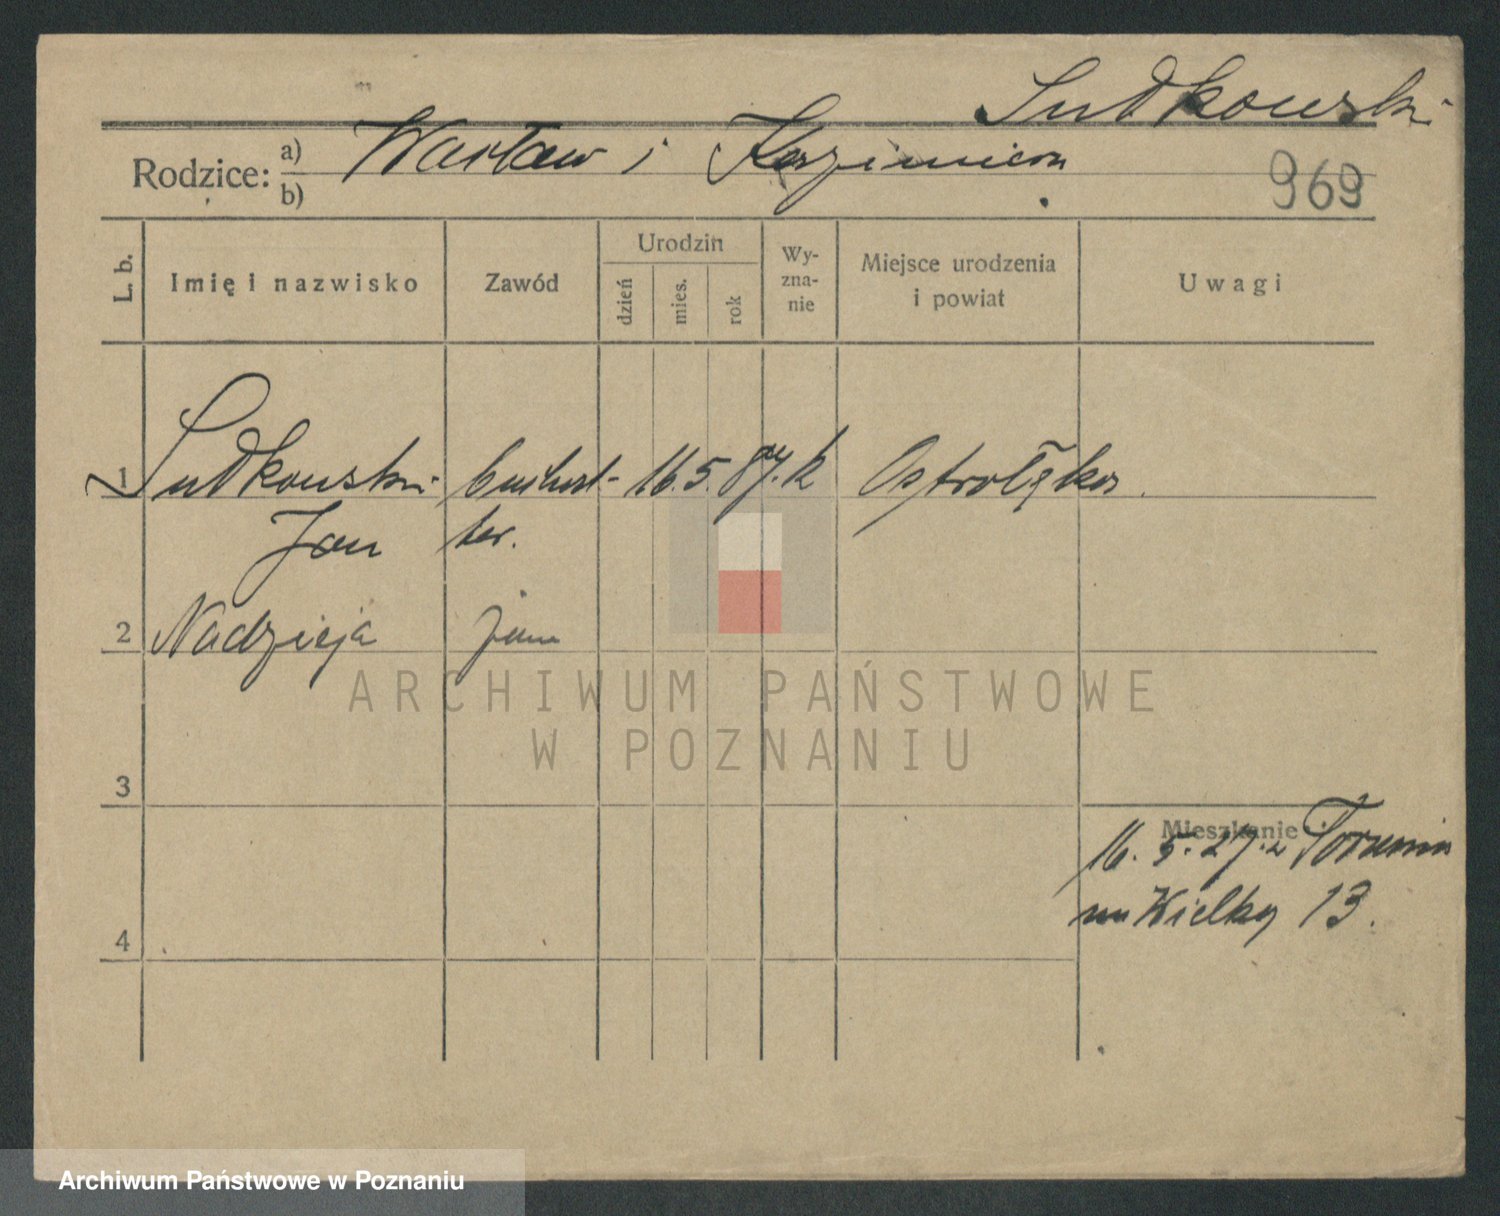 Sutkowski
Rodzice: a) b) Wacław i Kazimiera
969
L. b. Imię i nazwisko Zawód Urodzin dzień mies. rok Wy-zna-nie Miejsce urodzenia i powiat Uwagi
1 Sutkowski buchal- 16. 5. 87. k Ostrołęka
Jan ter.
2 Nadzieja żona
ARCHIWUM PAŃSTWOWE
W POZNANIU
3
Mieszkanie
16. 5. 27. z Torunia
Wielka 13.
4
Archiwum Państwowe w Poznaniu